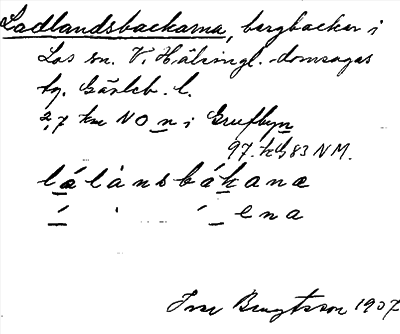 Ladlandsbackarna, bergbackar i
Los sn. V. Hälsingl. domsagas
tg. Gävleb. l.
2,7 km NO n i Grufbyn
97. 83 NM.
lálànsbákana
ena
Ivar Bengtsson 1907